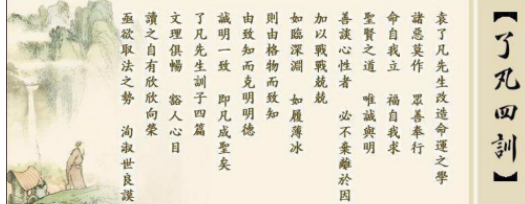 【了凡四訓】
袁了凡先生改造命運之學
諸惡莫作 眾善奉行
命自我立 福自我求
聖賢之道 唯誠與明
善談心性者 必不棄離於因
加以戰戰兢兢
如臨深淵 如履薄冰
則由格物而致知
由致知而克明明德
誠明一致 即凡成聖矣
了凡先生訓子四篇
文理俱暢 豁人心目
讀之自有欣欣向榮
亟欲取法之勢 洵淑世良謨